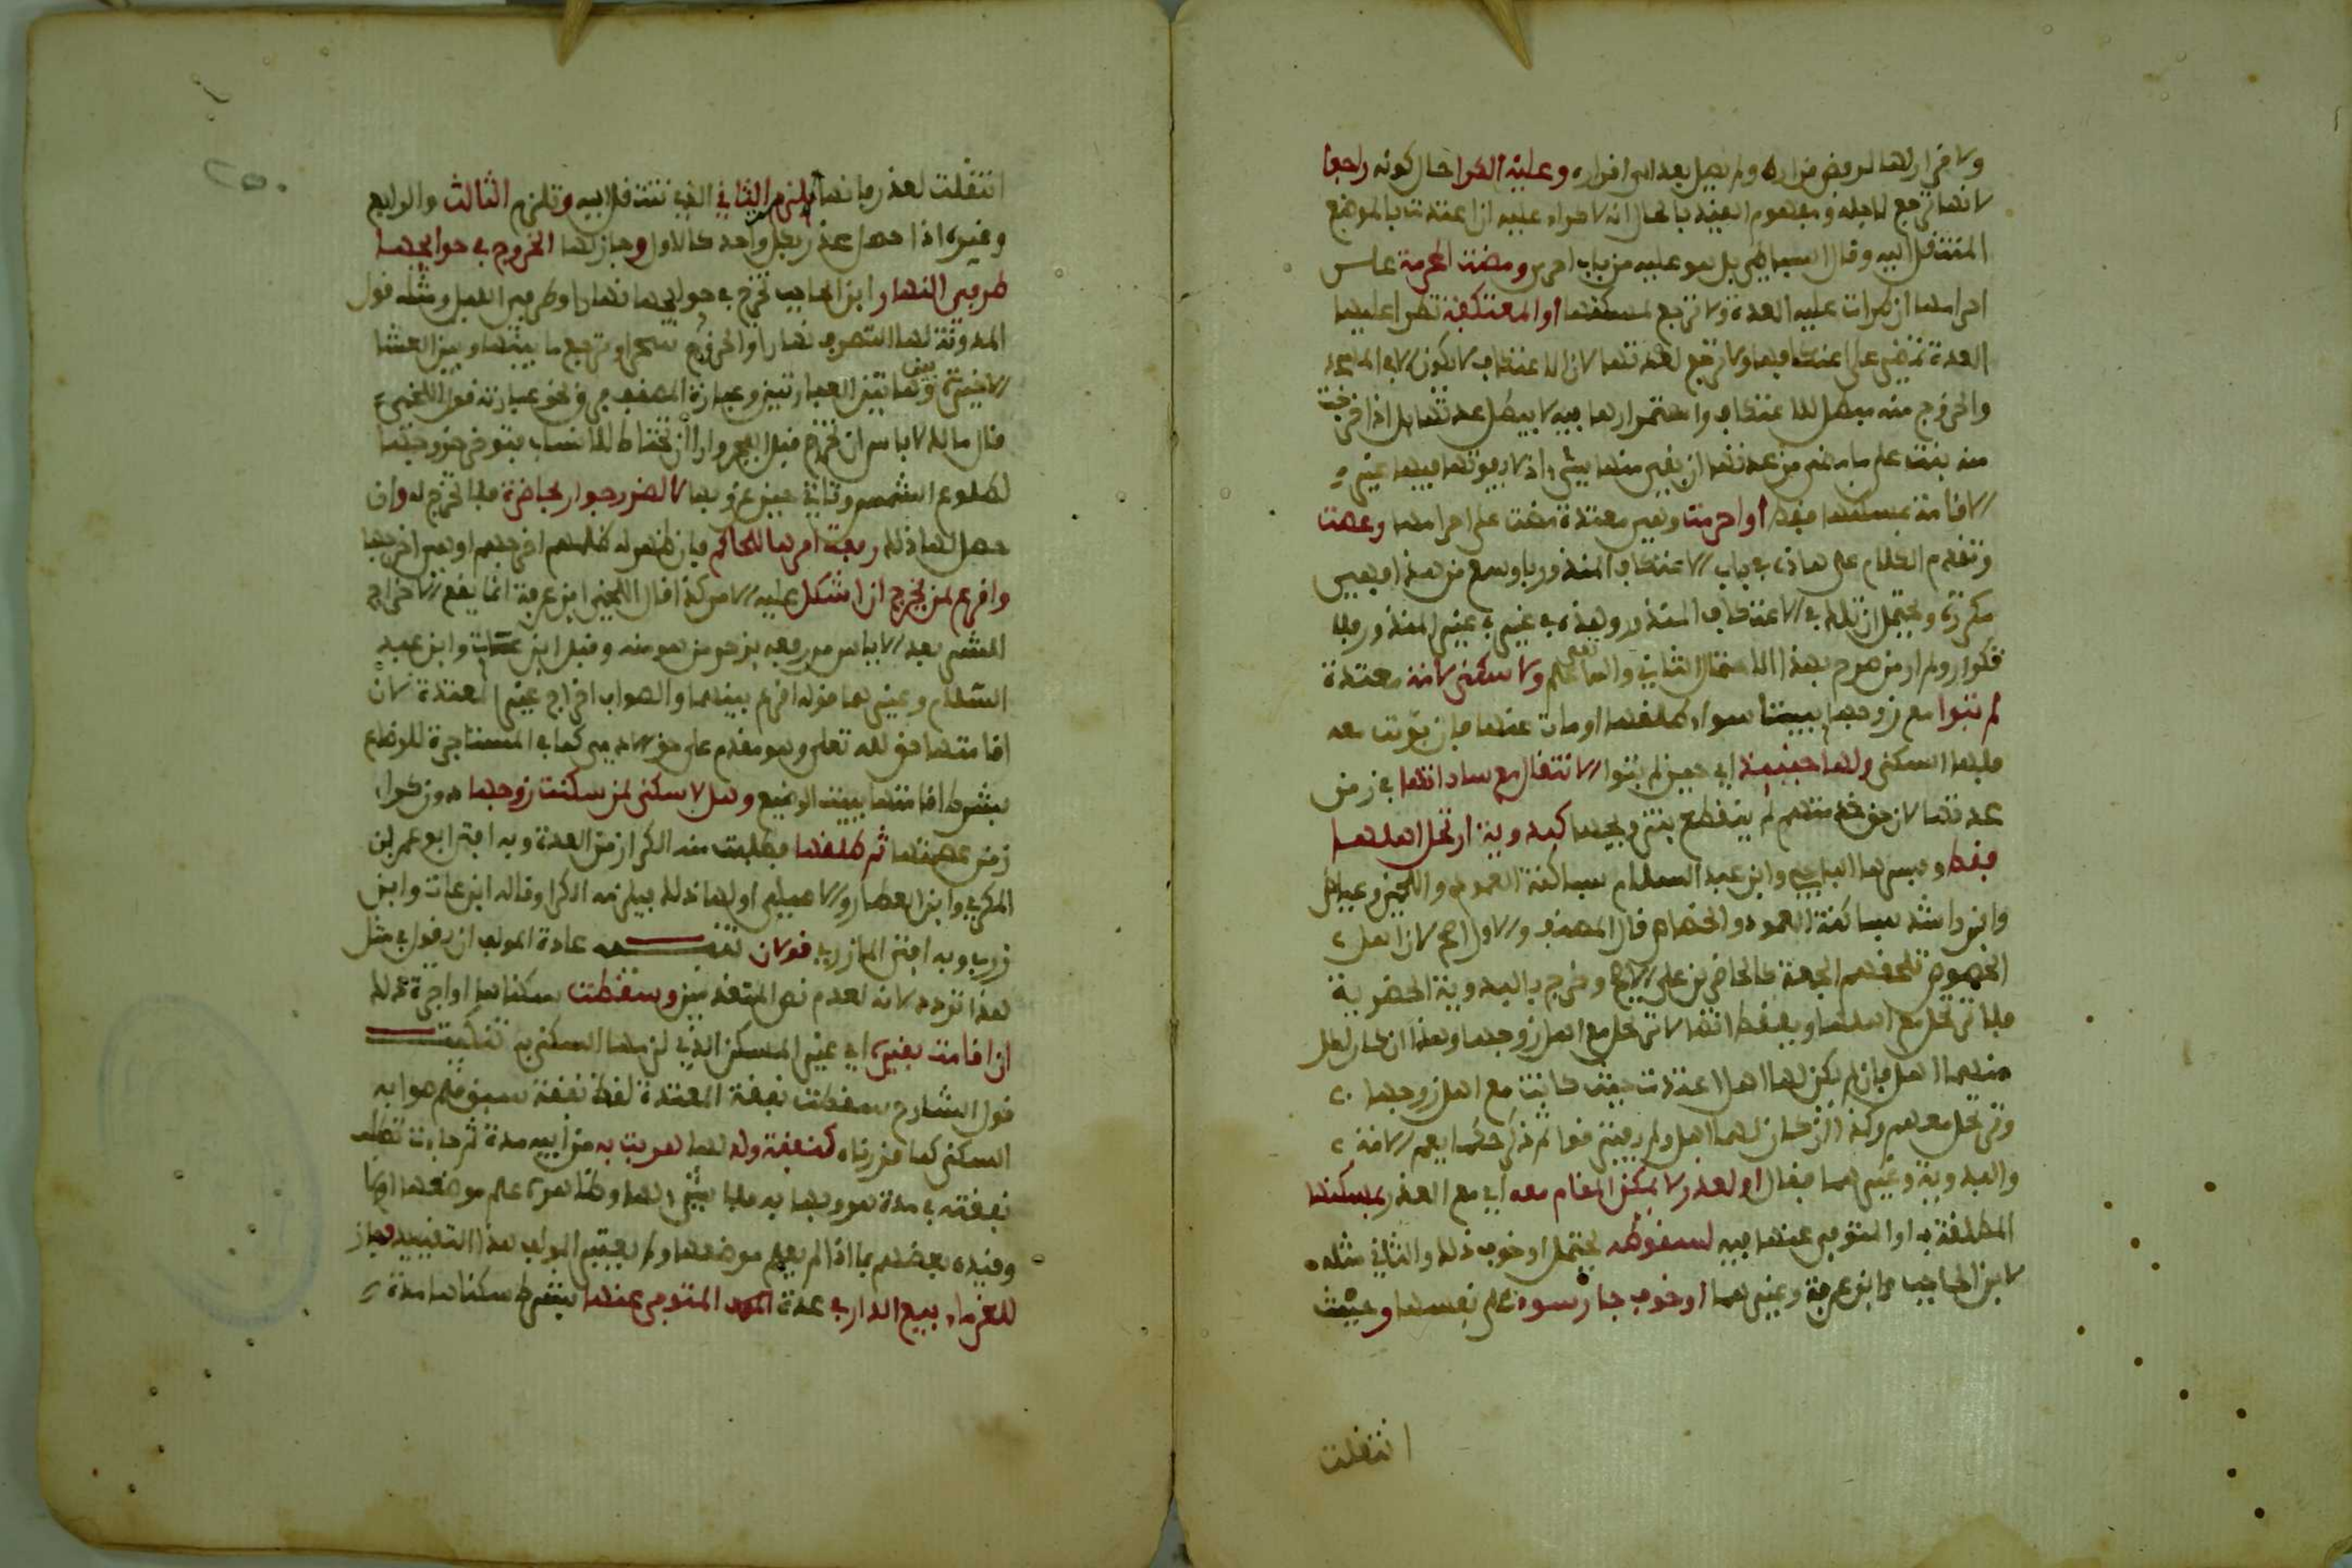 ولا قرار لها لرفض قراره ولم يصل بعد لمحل قراره وعليه الكرا حال كونه راجعا
لانها ترجع لاجله ومفهوم القيد بالحال انه لا كراء عليه ان اعتدت بالموضع
المنتقل اليه وقال البساطي بل هو عليه من باب احرى ومضت المحرمة على
احرامها ان طرات عليه العدة ولا ترجع لمسكنها او المعتكفة تطرا عليها
العدة تمضي على اعتكافها ولا ترجع لعدتها لان الاعتكاف لا يكون الا في المساجد
والخروج منه مبطل للاعتكاف واستمرارها فيه لا يبطل عدتها بل اذا خرجت
منه بنت على ما مضى من عدتها ان بقي منها شيء اذ لا يفوتها فيها غير
الاقامة بمسكنها فقط او احرمت وهي معتدة مضت على احرامها وعصت
وتقدم الكلام على هاذه في باب الاعتكاف المنذور باوسع من هذا فهي
مكررة ويحتمل ان تلك في الاعتكاف المنذور وهذه في غير المنذور فلا
تكرار ولم ار من صرح بهذا الاحتمال الثاني والله تعلى اعلم ولا سكنى لامة معتدة
لم تبوا مع زوجها بيتا سواء طلقها او مات عنها فان بوئت معه
فلها السكنى ولها حينئذ اي حين لم تبوا الانتقال مع ساداتها في زمن
عدتها لان حق خدمتهم لم ينقطع بتزويجها كبدوية ارتحل اهلها
فقط وفسرها الباجي وابن عبد السلام بساكنة العمود واللخمي وعياض
وابن راشد بساكنة العمود والخصاص قال المصنف والاول اصح لان اهل
الخصوص تلحقهم الجمعة كالحاضرين على الاصح وخرج بالبدوية الحضرية
فلا ترتحل مع اهلها وبفقط انها لا ترتحل مع اهل زوجها وهذا ان كان لكل
منهما اهل فان لم يكن لها اهل اعتدت حيث كانت مع اهل زوجها
وترتحل معهم وكذا ان كان لها اهل ولم يفترقوا ثم ذكر حكما يعم الامة
والبدوية وغيرهما فقال او لعذر لا يمكن المقام معه اي مع العذر بمسكنها
المطلقة به او المتوفى عنها فيه لسقوطه يحتمل او خوف ذلك والثاني مثله
لابن الحاجب وابن عرفة وغيرهما او خوف جار سوء على نفسها وحيث
انتقلت
انتقلت لعذر ما تقدم تلزم الثاني الذي تنتقل اليه وتلزم الثالث والرابع
وغيره اذا حصل عذر بكل واحد كالاول وجاز لها الخروج في حوائجها
طرفي النهار ابن الحاجب تخرج في حوائجها نهارا وطرفي الليل ومثله قول
المدونة لها التصرف نهارا والخروج سحرا وترجع ما بينها وبين العشا
الاخيرة وما بين العبارتين وعبارة المصنف فرق ونحو عبارته قول اللخمي
قال مالك لا باس ان تخرج قبل الفجر وارا ان تحتاط للانساب فتوخر خروجها
لطلوع الشمس وتاتي حين غروبها لا لضرر جوار بحاضرة فلا تخرج له وان
حصل لها ذلك رفعت امرها للحاكم فان ظهر له ظلمهم اخرجهم او هي اخرجها
واقرع لمن يخرج ان اشكل عليه الامر كذا قال اللخمي ابن عرفة انما يقع الاخراج
لشر بعد الاياس من رفعه بزجر من هو منه وقبل ابن عتاب وابن عبد
السلام وغيرهما قوله اقرع بينهما والصواب اخراج غير المعتدة لان
اقامتها حق لله تعلى وهو مقدم على حق الادمي كما في المستاجرة للرضاع
بشرط اقامتها ببيت الرضيع وهل لا سكنى لمن سكنت زوجها دون كراء
زمن عصمتها ثم طلقها فطلبت منه الكرا زمن العدة وبه افتى ابو عمر بن
المكوي وابن العطار والاصيلي او لها ذلك فيلزمه الكرا وقاله ابن عتاب وابن
زرب وبه افتى المازري قولان تنبيه عادة المولف ان يقول في مثل
هذا تردد لانه لعدم نص المتقدمين وسقطت سكناها او اجرة ذلك
ان اقامت بغيره اي غير المسكن الذي لزمها السكنى به تنكيت
قول الشارح سقطت نفقة المعتدة لفظة نفقة سبق قلم صوابه
السكنى كما قررناه كنفقة ولد لها هربت به من ابيه مدة ثم جاءت تطلب
نفقته في مدة هروبها به فلا شيء لها وظاهره علم موضعها ام لا
وقيده بعضهم بما اذا لم يعلم موضعها ولم يعتبر المولف هذا التقييد وجاز
للغرماء بيع الدار في عدة المتوفى عنها بشرط سكناها مدة